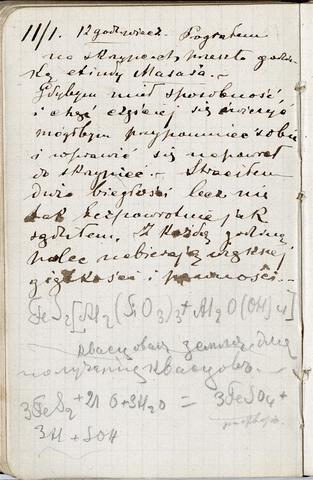 11/1. 12 godz wiecz. Pograłem
na skrzypcach przeszło godzin-
kę etiudy Masasa. -
Gdybym miał sposobność
i chęć częściej się ćwiczyć
mógłbym przypomnieć sobie
i wprawić się na powrót
do skrzypiec. - Straciłem
dużo biegłości lecz nie
tak bezpowrotnie jak
sądziłem. Z każdą godziną
palce nabierają większej
giętkości i pewności. -
FeS2[Al2(SiO3)3 + Al2O(OH)4]
квасцовая земля для
получения квасцовъ. -
3FeS2 + 21 O + 3H2O = 3FeSO4 +
3H + SOH